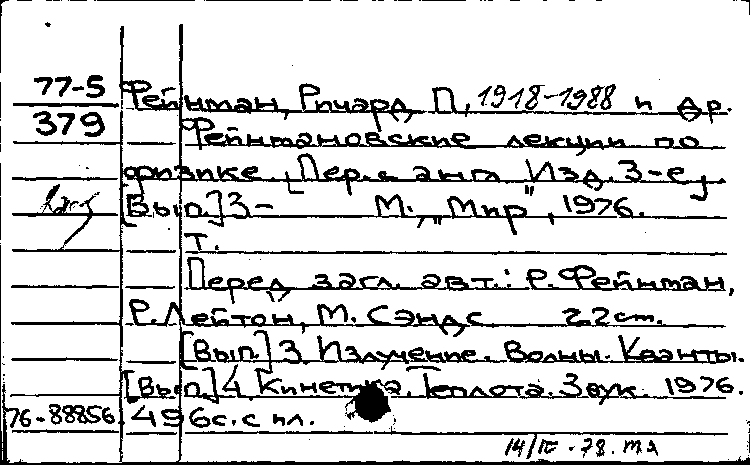 77-5 Фейнман, Ричард П, 1918-1988 и др.
379 Фейнмановские лекции по
физике. [Пер. с англ Изд. 3-е].
[Вып.] 3- М., "Мир", 1976.
т.
Перед загл. авт.: Р. Фейнман,
Р. Лейтон, М. Сэндс. 22 cm.
[Вып.] 3 Излучение. Волны. Кванты.
[Вып.] 4 Кинетика. Теплота. Звук. 1976.
76-88856 496с. с ил.
14/IV-78. МА